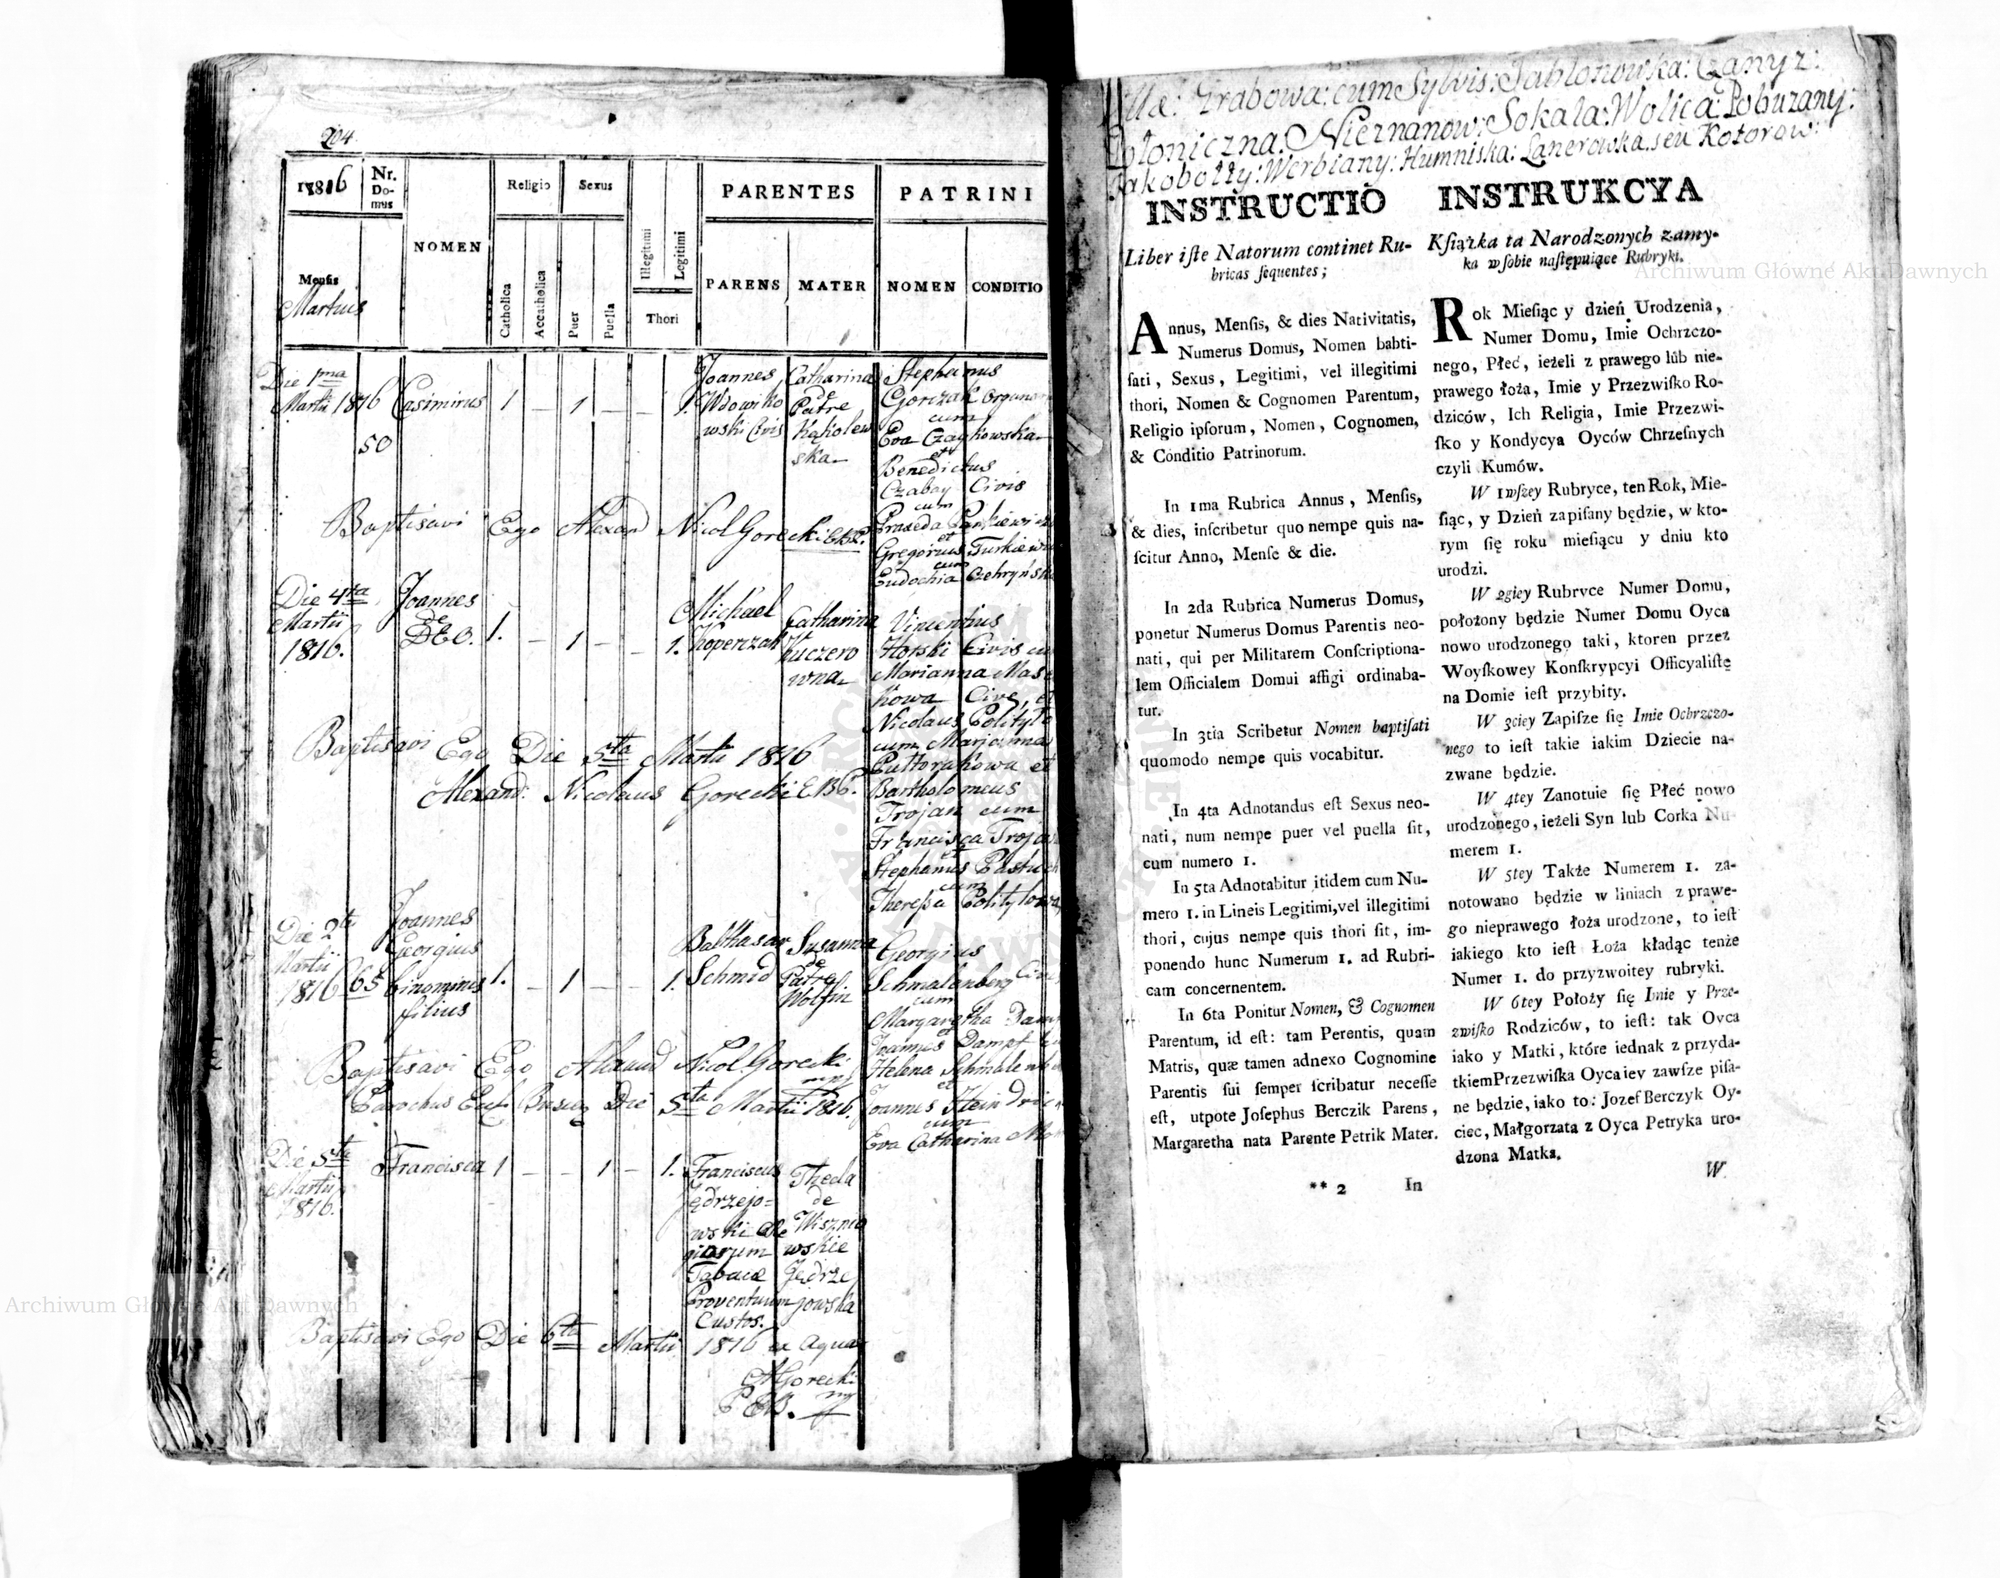 204.
1816
Nr. Do- mus
NOMEN
Religio
Sexus
PARENTES
PATRINI
Mensis
Martius
Catholica
Accatholica
Puer
Puella
Illegitimi
Legitimi
Thori
PARENS
MATER
NOMEN
CONDITIO
Die 1ma
Martii 1816
50
Casimirus
1 – 1 – – 1.
Joannes
Wdowiko
wski Civis
Catharina
de
Patre
Kąkolew
ska
Stephanus
Gorczak
cum
Eva Czaykowska
et
Benedictus
Czabay Civis
cum
Praxeda
et
Gregorius
cum
Eudochia
Baptisavi Ego Alexand Nicol Gorecki
Die 4ta
Martii
1816.
Joannes
de
Deo.
1. – 1 – – 1.
Michael
Koperczak
Catharina
Kuczero
wna
Vincentius
Horski Civis
Marianna
Nicolaus
cum Marianna
et
Bartholomeus
Trojan cum
Francisca
Stephanus
cum
Theresia
Baptisavi Ego Die 5ta Martii 1816
Alexand. Nicolaus Gorecki
Die 2da
Martii
1816 65
Joannes
Georgius
binominus
filius
1. – 1 – – 1.
Balthasar
Schmid
Susanna
de
Patre
Wolfin
Georgius
Schmalenberg
cum
Margaretha
Joannes Dampf
Helena
et
Joannes
cum
Eva Catharina
Baptisavi Ego Alexand Nicol Gorecki
Parochus Die 5ta Martii 1816.
Die 5ta
Martii
1816.
Francisca
1 – – 1 – 1.
Franciscus
Jędrzejo=
wski Re
giarum
Tabacae
Proventuum
Custos.
Thecla
de
Wisznio
wskie
Jędrze
jowska
Baptisavi Ego Die 6ta Martii 1816 ex aqua
AGorecki
Grabowa: cum Sylvis: Jablonowka: Czanyz:
Nieznanow: Sokala: Wolica: Pobuzany:
Werbiany: Humniska: Lanerowka. seu Kotorow:
INSTRUCTIO
Liber iſte Natorum continet Ru-
bricas ſequentes;
Annus, Menſis, & dies Nativitatis,
Numerus Domus, Nomen babti-
ſati, Sexus, Legitimi, vel illegitimi
thori, Nomen & Cognomen Parentum,
Religio ipſorum, Nomen, Cognomen,
& Conditio Patrinorum.
In 1ma Rubrica Annus, Menſis,
& dies, inſcribetur quo nempe quis na-
ſcitur Anno, Menſe & die.
In 2da Rubrica Numerus Domus,
ponetur Numerus Domus Parentis neo-
nati, qui per Militarem Conſcriptiona-
lem Officialem Domui affigi ordinaba-
tur.
In 3tia Scribetur Nomen baptiſati
quomodo nempe quis vocabitur.
In 4ta Adnotandus eſt Sexus neo-
nati, num nempe puer vel puella ſit,
cum numero 1.
In 5ta Adnotabitur itidem cum Nu-
mero 1. in Lineis Legitimi, vel illegitimi
thori, cujus nempe quis thori ſit, im-
ponendo hunc Numerum 1. ad Rubri-
cam concernentem.
In 6ta Ponitur Nomen, & Cognomen
Parentum, id eſt: tam Perentis, quam
Matris, quæ tamen adnexo Cognomine
Parentis ſui ſemper ſcribatur neceſſe
eſt, utpote Joſephus Berczik Parens,
Margaretha nata Parente Petrik Mater.
** 2 In
INSTRUKCYA
Kſiążka ta Narodzonych zamy-
ka w ſobie naſtępuiące Rubryki.
Rok Mieſiąc y dzień Urodzenia,
Numer Domu, Imie Ochrzczo-
nego, Płeć, ieżeli z prawego lûb nie-
prawego łoża, Imie y Przezwiſko Ro-
dziców, Ich Religia, Imie Przezwi-
ſko y Kondycya Oyców Chrzeſnych
czyli Kumów.
W 1wſzey Rubryce, ten Rok, Mie-
ſiąc, y Dzień zapiſany będzie, w kto-
rym ſię roku mieſiącu y dniu kto
urodzi.
W 2giey Rubryce Numer Domu,
położony będzie Numer Domu Oyca
nowo urodzonego taki, ktoren przez
Woyſkowey Konſkrypcyi Officyaliſtę
na Domie ieſt przybity.
W 3ciey Zapiſze ſię Imie Ochrzczo-
nego to ieſt takie iakim Dziecie na-
zwane będzie.
W 4tey Zanotuie ſię Płeć nowo
urodzonego, ieżeli Syn lub Corka Nu-
merem 1.
W 5tey Także Numerem 1. za-
notowano będzie w liniach z prawe-
go nieprawego łoża urodzone, to ieſt
iakiego kto ieſt Łoża kładąc tenże
Numer 1. do przyzwoitey rubryki.
W 6tey Położy ſię Imie y Prze-
zwiſko Rodziców, to ieſt: tak Oyca
iako y Matki, które iednak z przyda-
tkiem Przezwiſka Oyca iey zawſze piſa-
ne będzie, iako to: Jozef Berczyk Oy-
ciec, Małgorzata z Oyca Petryka uro-
dzona Matka.
W
Archiwum Główne Akt Dawnych
Archiwum Główne Akt Dawnych